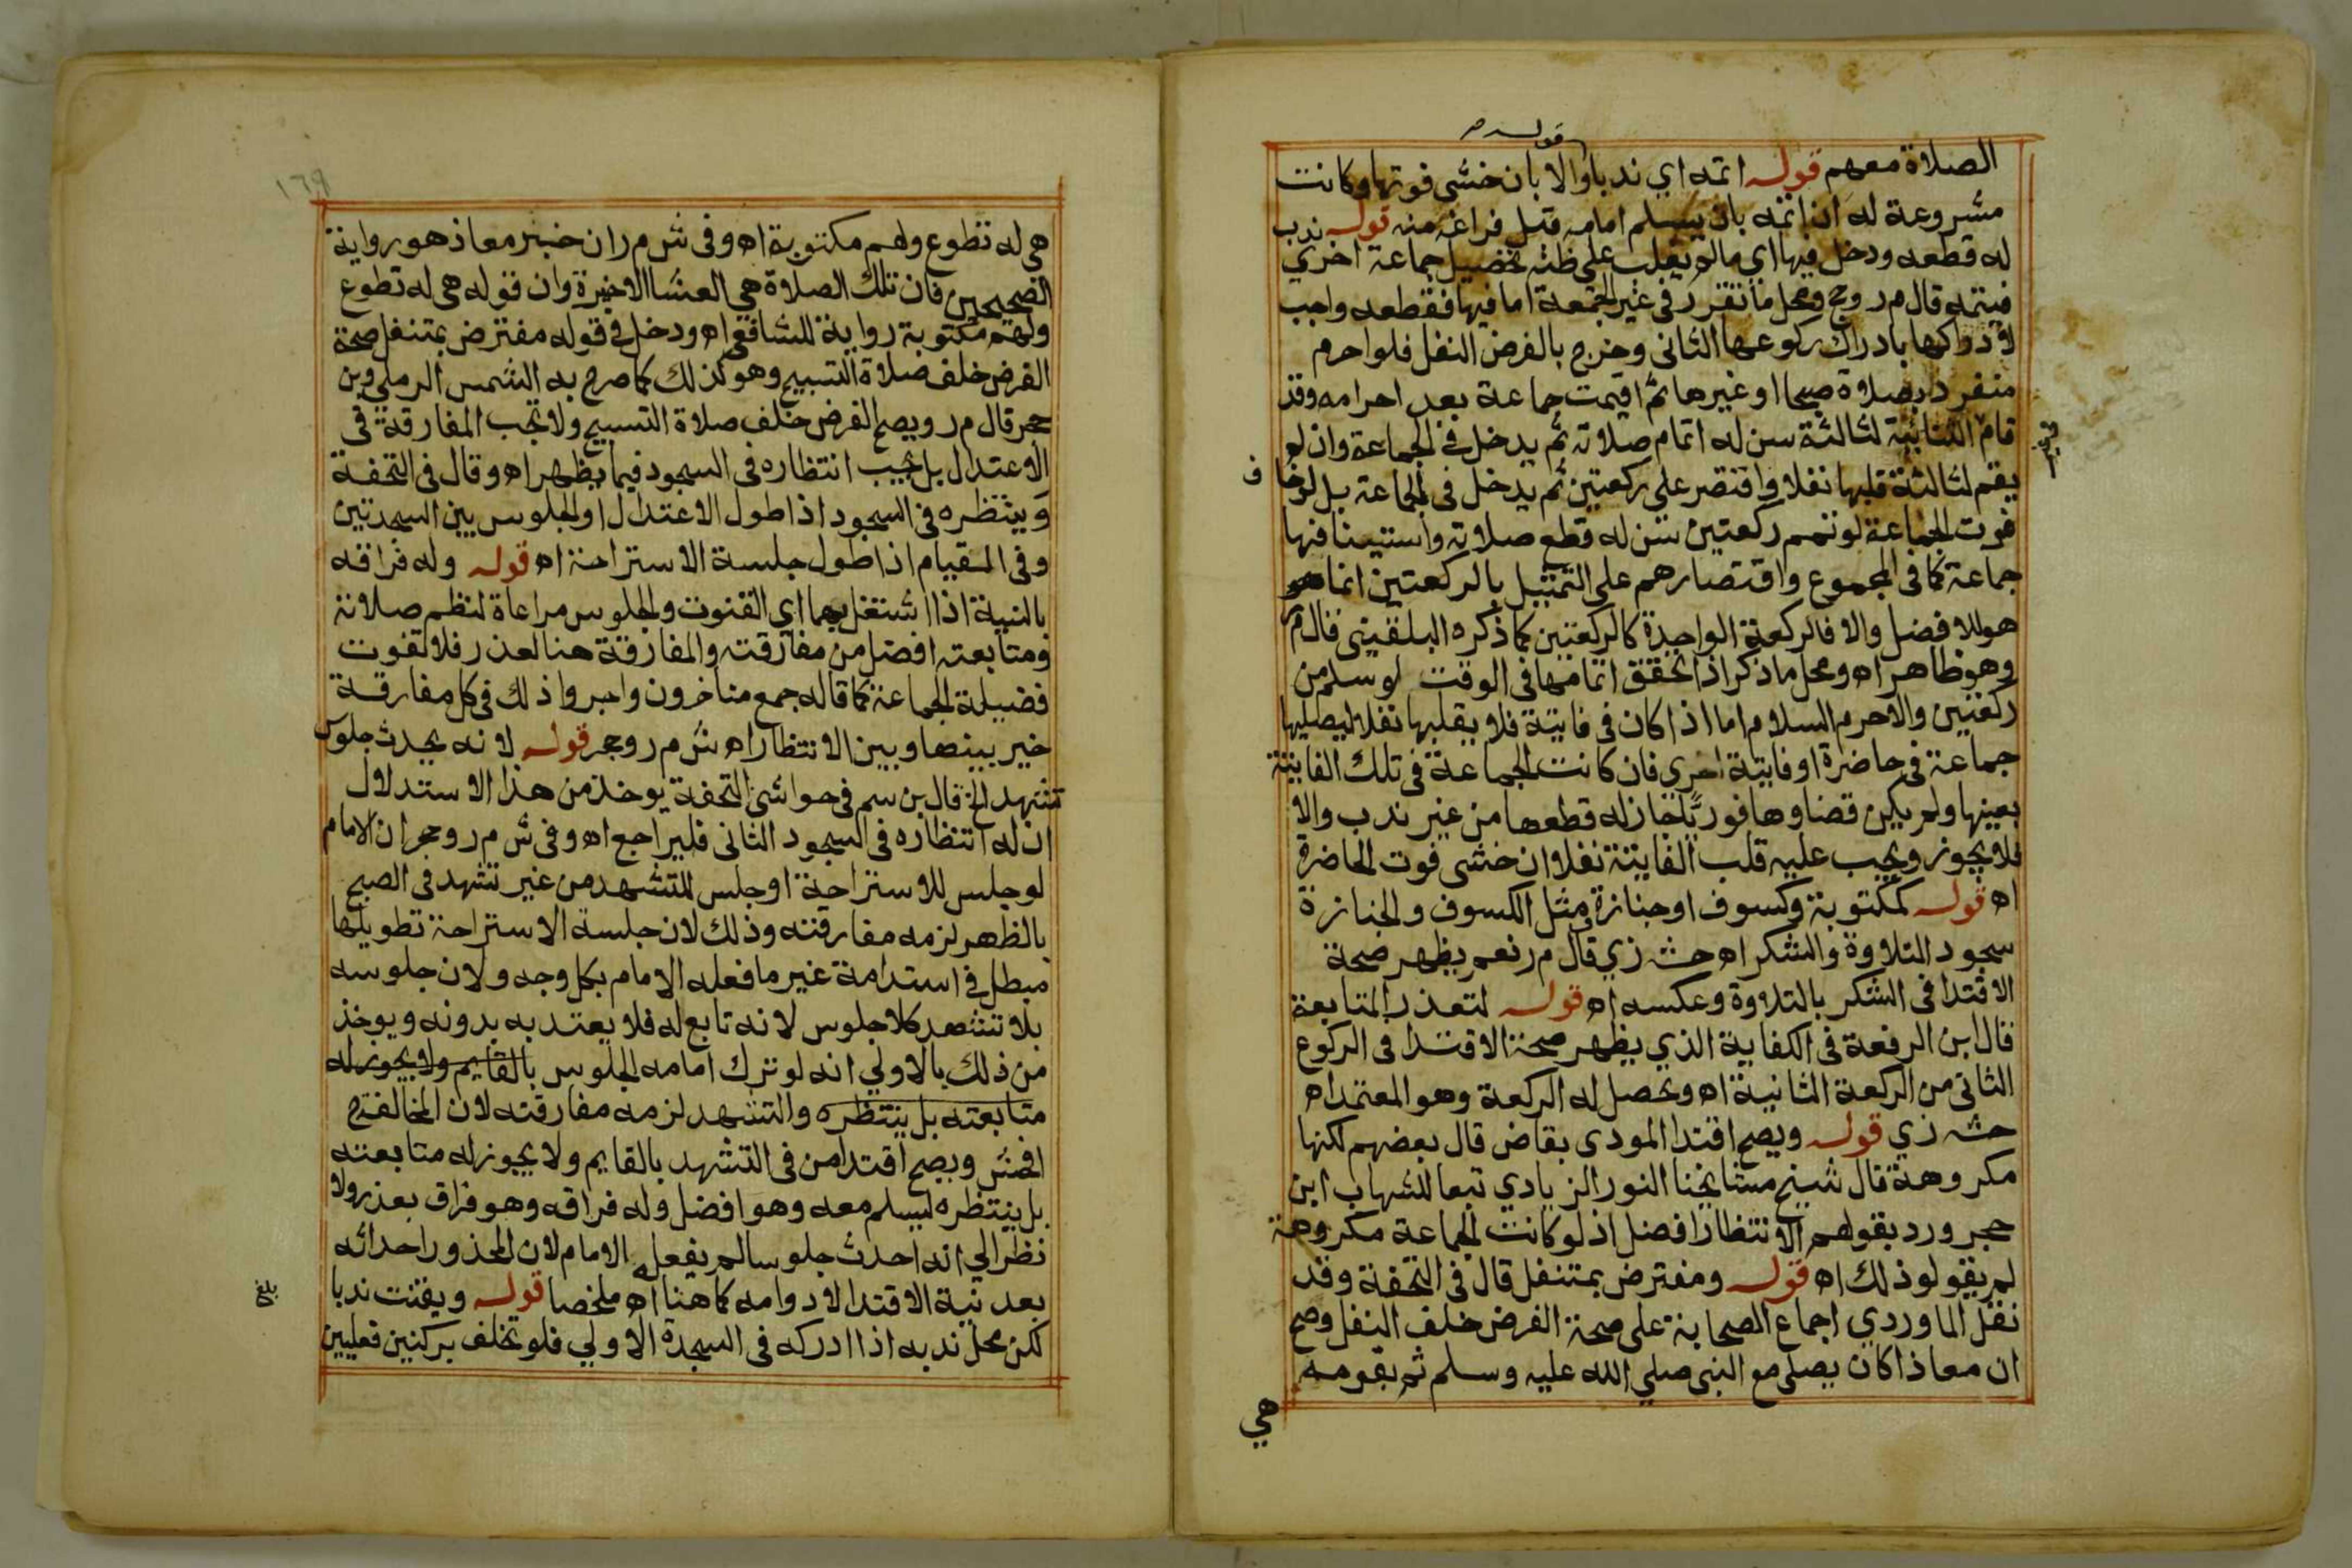 قوله
الصلاة معهم قوله اتمه اي ندبا والا بان خشي فوتها وكانت
مشروعة له ان اتمه بان يسلم امامه قبل فراغه منه قوله ندب
له قطعه ودخل فيها اي مالم يغلب علي ظنه تحصيل جماعة اخري
فيتمه قال م ر وحج ومحل ما تقرر في غير الجمعة اما فيها فقطعه واجب
لادراكها بادراك ركوعها الثاني وخرج بالفرض النفل فلو احرم
منفردا بصلاة صبحا او غيرها ثم اقيمت جماعة بعد احرامه وقد
قام الثنائية لثالثة سن له اتمام صلاته ثم يدخل في الجماعة وان لو
يقم لثالثة قلبها نفلا واقتصر علي ركعتين ثم يدخل في الجماعة بل لو خا
ف
فوت الجماعة لو تمم ركعتين سن له قطع صلاته واستينافها
جماعة كما في المجموع واقتصارهم علي التمثيل بالركعتين انما هو
هو للافضل والا فالركعة الواحدة كالركعتين كما ذكره البلقيني قال م ر
وهو ظاهر اه ومحل ما ذكر اذا تحقق اتمامها في الوقت لو سلم من
ركعتين والا حرم السلام اما اذا كان في فايتة فلا يقلبها نفلا ليصليها
جماعة في حاضرة او فايتة اخري فان كانت الجماعة في تلك الفايتة
بعينها ولم يكن قضاوها فوريا جاز له قطعها من غير ندب والا
فلا يجوز ويجب عليه قلب الفايتة نفلا ان خشي فوت الحاضرة
اه قوله كمكتوبة وكسوف او جنازة مثل الكسوف والجنازة
سجود التلاوة والشكر اه حش زي قال م ر نعم يظهر صحة
الاقتدا في الشكر بالتلاوة وعكسه اه قوله لتعذر المتابعة
قال بن الرفعة في الكفاية الذي يظهر صحة الاقتدا في الركوع
الثاني من الركعة الثانية اه وتحصل له الركعة وهو المعتمد اه
حش زي قوله ويصح اقتدا المودي بقاض قال بعضهم لكنها
مكروهة قال شيخ مشايخنا النور الزيادي تبعا للشهاب ابن
حجر ورد بقولهم الانتظار افضل اذ لو كانت الجماعة مكروهة
لم يقولو ذلك اه قوله ومفترض بمتنفل قال في التحفة وقد
نقل الماوردي اجماع الصحابة علي صحة الفرض خلف النفل وصح
ان معاذا كان يصلي مع النبي صلي الله عليه وسلم ثم بقومه
هي
١٦٩
هي له تطوع ولهم مكتوبة اه وفي ش م ر ان خبر معاذ هو رواية
الصحيحين فان تلك الصلاة هي العشا الاخيرة وان قوله هي له تطوع
ولهم مكتوبة رواية للشافعي اه ودخل في قوله مفترض بمتنفل صحة
الفرض خلف صلاة التسبيح وهو كذلك كما صرح به الشمس الرملي وبن
حجر قال م ر ويصح الفرض خلف صلاة التسبيح ولا تجب المفارقة في
الاعتدال بل يجب انتظاره في السجود فيما يظهر اه وقال في التحفة
وينتظره في السجود اذا طول الاعتدال او الجلوس بين السجدتين
وفي القيام اذا طول جلسة الاستراحة اه قوله وله فراقه
بالنية اذا اشتغل بهما اي القنوت والجلوس مراعاة لنظم صلاته
ومتابعته افضل من مفارقته والمفارقة هنا لعذر فلا تفوت
فضيلة الجماعة كما قاله جمع متاخرون واجروا ذلك في كل مفارقة
خير بينها وبين الانتظار اه ش م ر وحجر قوله لانه يحدث جلوس
تشهد الخ قال بن سم في حواشي التحفة يوخذ من هذا الاستدلال
ان له انتظاره في السجود الثاني فليراجع اه وفي ش م ر وحجر ان الامام
لو جلس للاستراحة او جلس للتشهد من غير تشهد في الصبح
بالظهر لزمه مفارقته وذلك لان جلسة الاستراحة تطويلها
مبطل في استدامة غير ما فعله الامام بكل وجه ولان جلوسه
بلا تشهد كلا جلوس لانه تابع له فلا يعتد به بدونه ويوخذ
من ذلك بالاولي انه لو ترك امامه الجلوس بالقايم ولا يجوز له
متابعته بل ينتظره والتشهد لزمه مفارقته لان المخالفة ح
افحش ويصح اقتدا من في التشهد بالقايم ولا يجوز له متابعته
بل ينتظره ليسلم معه وهو افضل وله فراقه وهو فراق بعذر ولا
نظر الي انه احدث جلوسا لم يفعله الامام لان المحذور احداثه
بعد نية الاقتدا لا دوامه كما هنا اه ملخصا قوله ويقنت ندبا
لكن محل ندبه اذا ادركه في السجدة الاولي فلو تخلف بركنين فعليين
بلغ